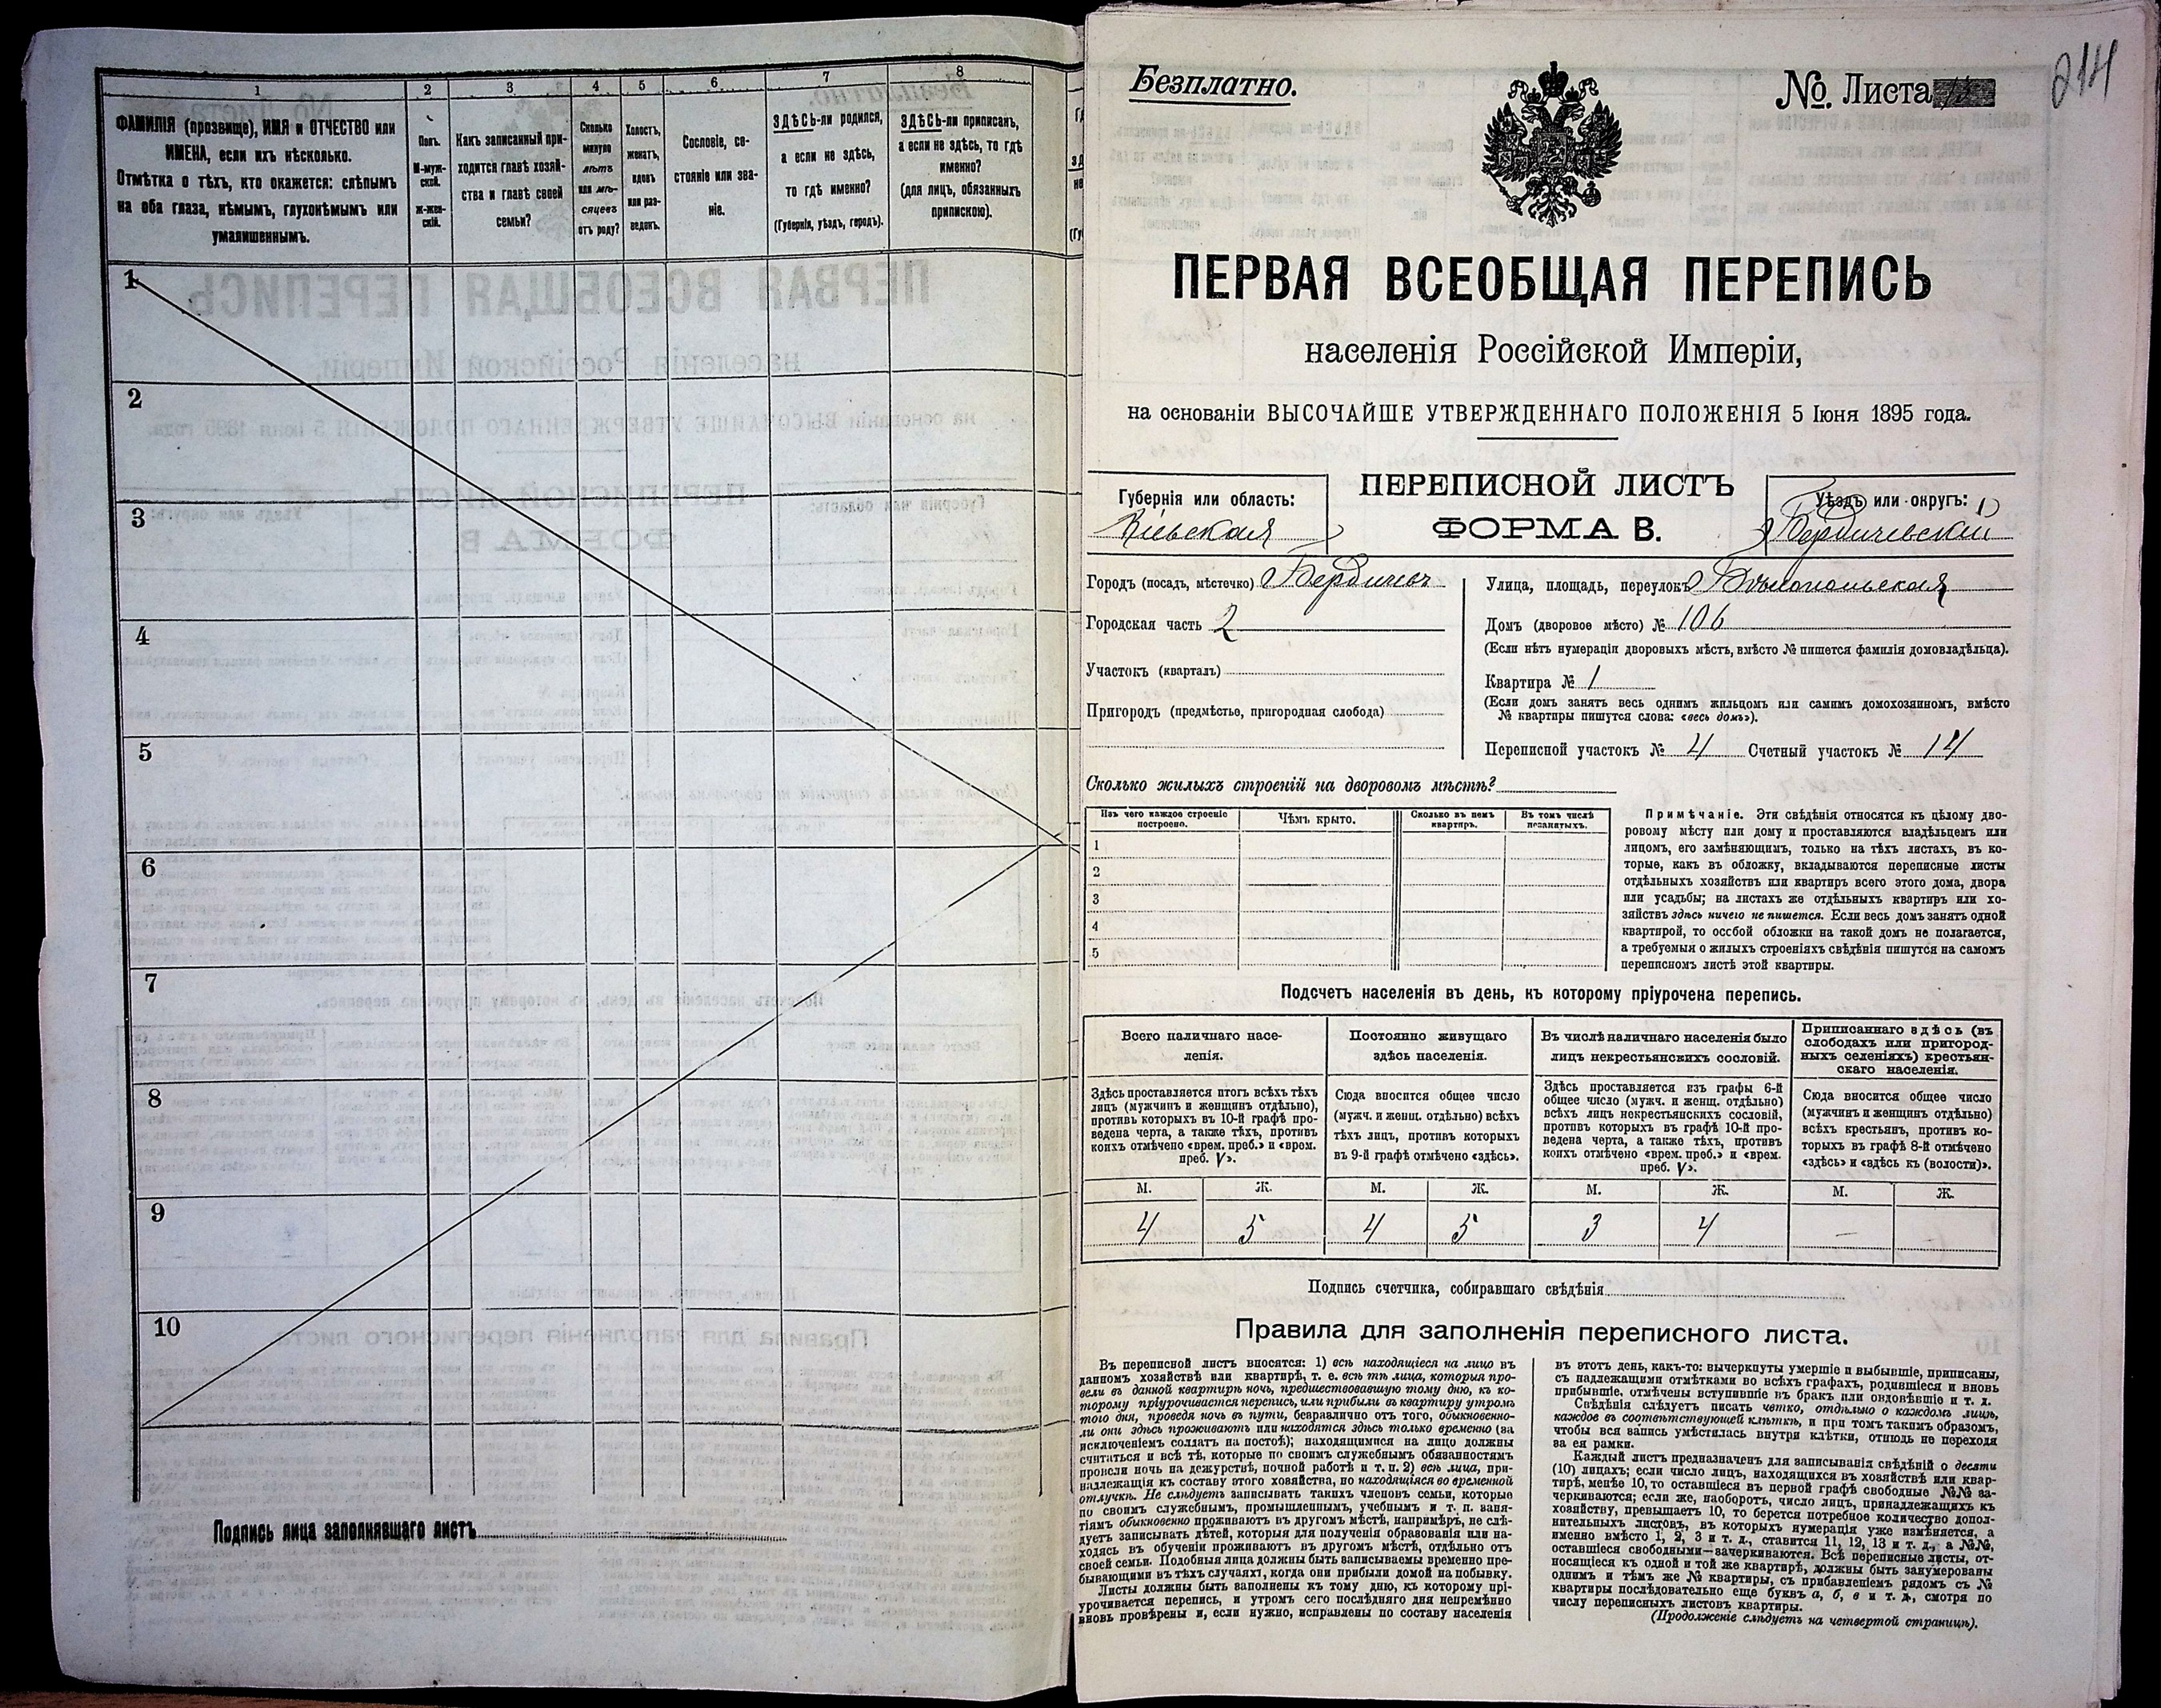 1 2 3 4 5 6 7 8
ФАМИЛІЯ (прозвище), ИМЯ и ОТЧЕСТВО или
ИМЕНА, если ихъ нѣсколько.
Отмѣтка о тѣхъ, кто окажется: слѣпымъ
на оба глаза, нѣмымъ, глухонѣмымъ или
умалишеннымъ.
Полъ.
М-муж-
ской.
ж-жен-
скій.
Какъ записанный при-
ходится главѣ хозяй-
ства и главѣ своей
семьи?
Сколько
минуло
лѣтъ
или мѣ-
сяцевъ
отъ роду?
Холостъ,
женатъ,
вдовъ
или раз-
веденъ.
Сословіе, со-
стояніе или зва-
ніе.
ЗДѢСЬ-ли родился,
а если не здѣсь,
то гдѣ именно?
(Губернія, уѣздъ, городъ).
ЗДѢСЬ-ли приписанъ,
а если не здѣсь, то гдѣ
именно?
(для лицъ, обязанныхъ
припискою).
1
2
3
4
5
6
7
8
9
10
Подпись лица заполнявшаго листъ
Безплатно.
№. Листа
214
ПЕРВАЯ ВСЕОБЩАЯ ПЕРЕПИСЬ
населенія Россійской Имперіи,
на основаніи ВЫСОЧАЙШЕ УТВЕРЖДЕННАГО ПОЛОЖЕНІЯ 5 Іюня 1895 года.
Губернія или область:
Кіевская
ПЕРЕПИСНОЙ ЛИСТЪ
ФОРМА В.
Уѣздъ или округъ:
Бердичевскій
Городъ (посадъ, мѣстечко) Бердичевъ
Городская часть 2
Участокъ (кварталъ)
Пригородъ (предмѣстье, пригородная слобода)
Улица, площадь, переулокъ Бѣлопольская
Домъ (дворовое мѣсто) № 106
(Если нѣтъ нумераціи дворовыхъ мѣстъ, вмѣсто № пишется фамилія домовладѣльца).
Квартира № 1
(Если домъ занятъ весь однимъ жильцомъ или самимъ домохозяиномъ, вмѣсто
№ квартиры пишутся слова: «весь домъ»).
Переписной участокъ № 4 Счетный участокъ № 14
Сколько жилыхъ строеній на дворовомъ мѣстѣ?
Изъ чего каждое строеніе
построено.
Чѣмъ крыто.
Сколько въ немъ
квартиръ.
Въ томъ числѣ
незанятыхъ.
1
2
3
4
5
Примѣчаніе. Эти свѣдѣнія относятся къ цѣлому дво-
ровому мѣсту или дому и проставляются владѣльцемъ или
лицомъ, его замѣняющимъ, только на тѣхъ листахъ, въ ко-
торые, какъ въ обложку, вкладываются переписные листы
отдѣльныхъ хозяйствъ или квартиръ всего этого дома, двора
или усадьбы; на листахъ же отдѣльныхъ квартиръ или хо-
зяйствъ здѣсь ничего не пишется. Если весь домъ занятъ одной
квартирой, то особой обложки на такой домъ не полагается,
а требуемыя о жилыхъ строеніяхъ свѣдѣнія пишутся на самомъ
переписномъ листѣ этой квартиры.
Подсчетъ населенія въ день, къ которому пріурочена перепись.
Всего наличнаго насе-
ленія.
Постоянно живущаго
здѣсь населенія.
Въ числѣ наличнаго населенія было
лицъ некрестьянскихъ сословій.
Приписаннаго здѣсь (въ
слободахъ или пригород-
ныхъ селеніяхъ) крестьян-
скаго населенія.
Здѣсь проставляется итогъ всѣхъ тѣхъ
лицъ (мужчинъ и женщинъ отдѣльно),
противъ которыхъ въ 10-й графѣ про-
ведена черта, а также тѣхъ, противъ
коихъ отмѣчено «врем. преб.» и «врем.
преб. V».
Сюда вносится общее число
(мужч. и женщ. отдѣльно) всѣхъ
тѣхъ лицъ, противъ которыхъ
въ 9-й графѣ отмѣчено «здѣсь».
Здѣсь проставляется изъ графы 6-й
общее число (мужч. и женщ. отдѣльно)
всѣхъ лицъ некрестьянскихъ сословій,
противъ которыхъ въ графѣ 10-й про-
ведена черта, а также тѣхъ, противъ
коихъ отмѣчено «врем. преб.» и «врем.
преб. V».
Сюда вносится общее число
(мужчинъ и женщинъ отдѣльно)
всѣхъ крестьянъ, противъ ко-
торыхъ въ графѣ 8-й отмѣчено
«здѣсь» и «здѣсь къ (волости)».
М. Ж. М. Ж. М. Ж. М. Ж.
4 5 4 5 3 4 — —
Подпись счетчика, собиравшаго свѣдѣнія
Правила для заполненія переписного листа.
Въ переписной листъ вносятся: 1) всѣ находящіеся на лицо въ
данномъ хозяйствѣ или квартирѣ, т. е. всѣ тѣ лица, которыя про-
вели въ данной квартирѣ ночь, предшествовавшую тому дню, къ ко-
торому пріурочивается перепись, или прибыли въ квартиру утромъ
того дня, проведя ночь въ пути, безразлично отъ того, обыкновенно-
ли они здѣсь проживаютъ или находятся здѣсь только временно (за
исключеніемъ солдатъ на постоѣ); находящимися на лицо должны
считаться и всѣ тѣ, которые по своимъ служебнымъ обязанностямъ
провели ночь на дежурствѣ, ночной работѣ и т. п. 2) всѣ лица, при-
надлежащія къ составу этого хозяйства, но находящіяся во временной
отлучкѣ. Не слѣдуетъ записывать такихъ членовъ семьи, которые
по своимъ служебнымъ, промышленнымъ, учебнымъ и т. п. заня-
тіямъ обыкновенно проживаютъ въ другомъ мѣстѣ, напримѣръ, не слѣ-
дуетъ записывать дѣтей, которыя для полученія образованія или на-
ходясь въ обученіи проживаютъ въ другомъ мѣстѣ, отдѣльно отъ
своей семьи. Подобныя лица должны быть записываемы временно пре-
бывающими въ тѣхъ случаяхъ, когда они прибыли домой на побывку.
Листы должны быть заполнены къ тому дню, къ которому прі-
урочивается перепись, и утромъ сего послѣдняго дня непремѣнно
вновь провѣрены и, если нужно, исправлены по составу населенія
въ этотъ день, какъ-то: вычеркнуты умершіе и выбывшіе, приписаны,
съ надлежащими отмѣтками во всѣхъ графахъ, родившіеся и вновь
прибывшіе, отмѣчены вступившіе въ бракъ или овдовѣвшіе и т. д.
Свѣдѣнія слѣдуетъ писать четко, отдѣльно о каждомъ лицѣ,
каждое въ соотвѣтствующей клѣткѣ, и при томъ такимъ образомъ,
чтобы вся запись умѣстилась внутри клѣтки, отнюдь не переходя
за ея рамки.
Каждый листъ предназначенъ для записыванія свѣдѣній о десяти
(10) лицахъ; если число лицъ, находящихся въ хозяйствѣ или квар-
тирѣ, менѣе 10, то оставшіеся въ первой графѣ свободные №№ за-
черкиваются; если же, наоборотъ, число лицъ, принадлежащихъ къ
хозяйству, превышаетъ 10, то берется потребное количество допол-
нительныхъ листовъ, въ которыхъ нумерація уже измѣняется, а
именно вмѣсто 1, 2, 3 и т. д., ставится 11, 12, 13 и т. д., а №№,
оставшіеся свободными—зачеркиваются. Всѣ переписные листы, от-
носящіеся къ одной и той же квартирѣ, должны быть занумерованы
однимъ и тѣмъ же № квартиры, съ прибавленіемъ рядомъ съ №
квартиры послѣдовательно еще буквъ а, б, в и т. д., смотря по
числу переписныхъ листовъ квартиры.
(Продолженіе слѣдуетъ на четвертой страницѣ).